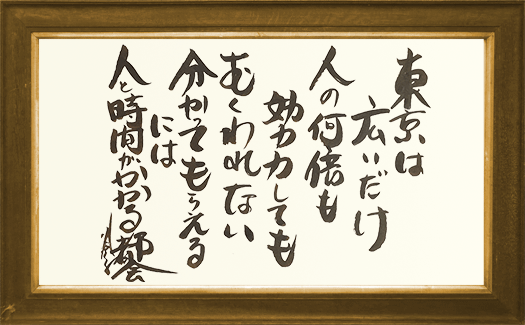 東京は
広いだけ
人の何倍も
努力しても
むくわれない
分かってもらえる
には
人と時間がかかる都会